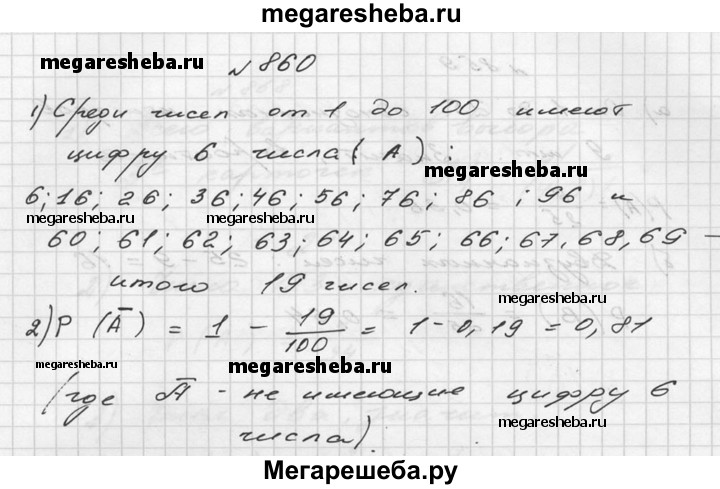 megaresheba.ru
megaresheba.ru № 860
1) Среди чисел от 1 до 100 имеют
цифру 6 числа (А):
megaresheba.ru
6; 16; 26; 36; 46; 56; 76; 86; 96 и
megaresheba.ru megaresheba.ru
60; 61; 62; 63; 64; 65; 66; 67, 68, 69 —
megaresheba.ru
итого 19 чисел.
2) P (Ā) = 1 - 19/100 = 1 - 0,19 = 0,81
megaresheba.ru megaresheba.ru megaresheba.ru
(где Ā - не имеющие цифру 6
числа).
Мегарешеба.ру